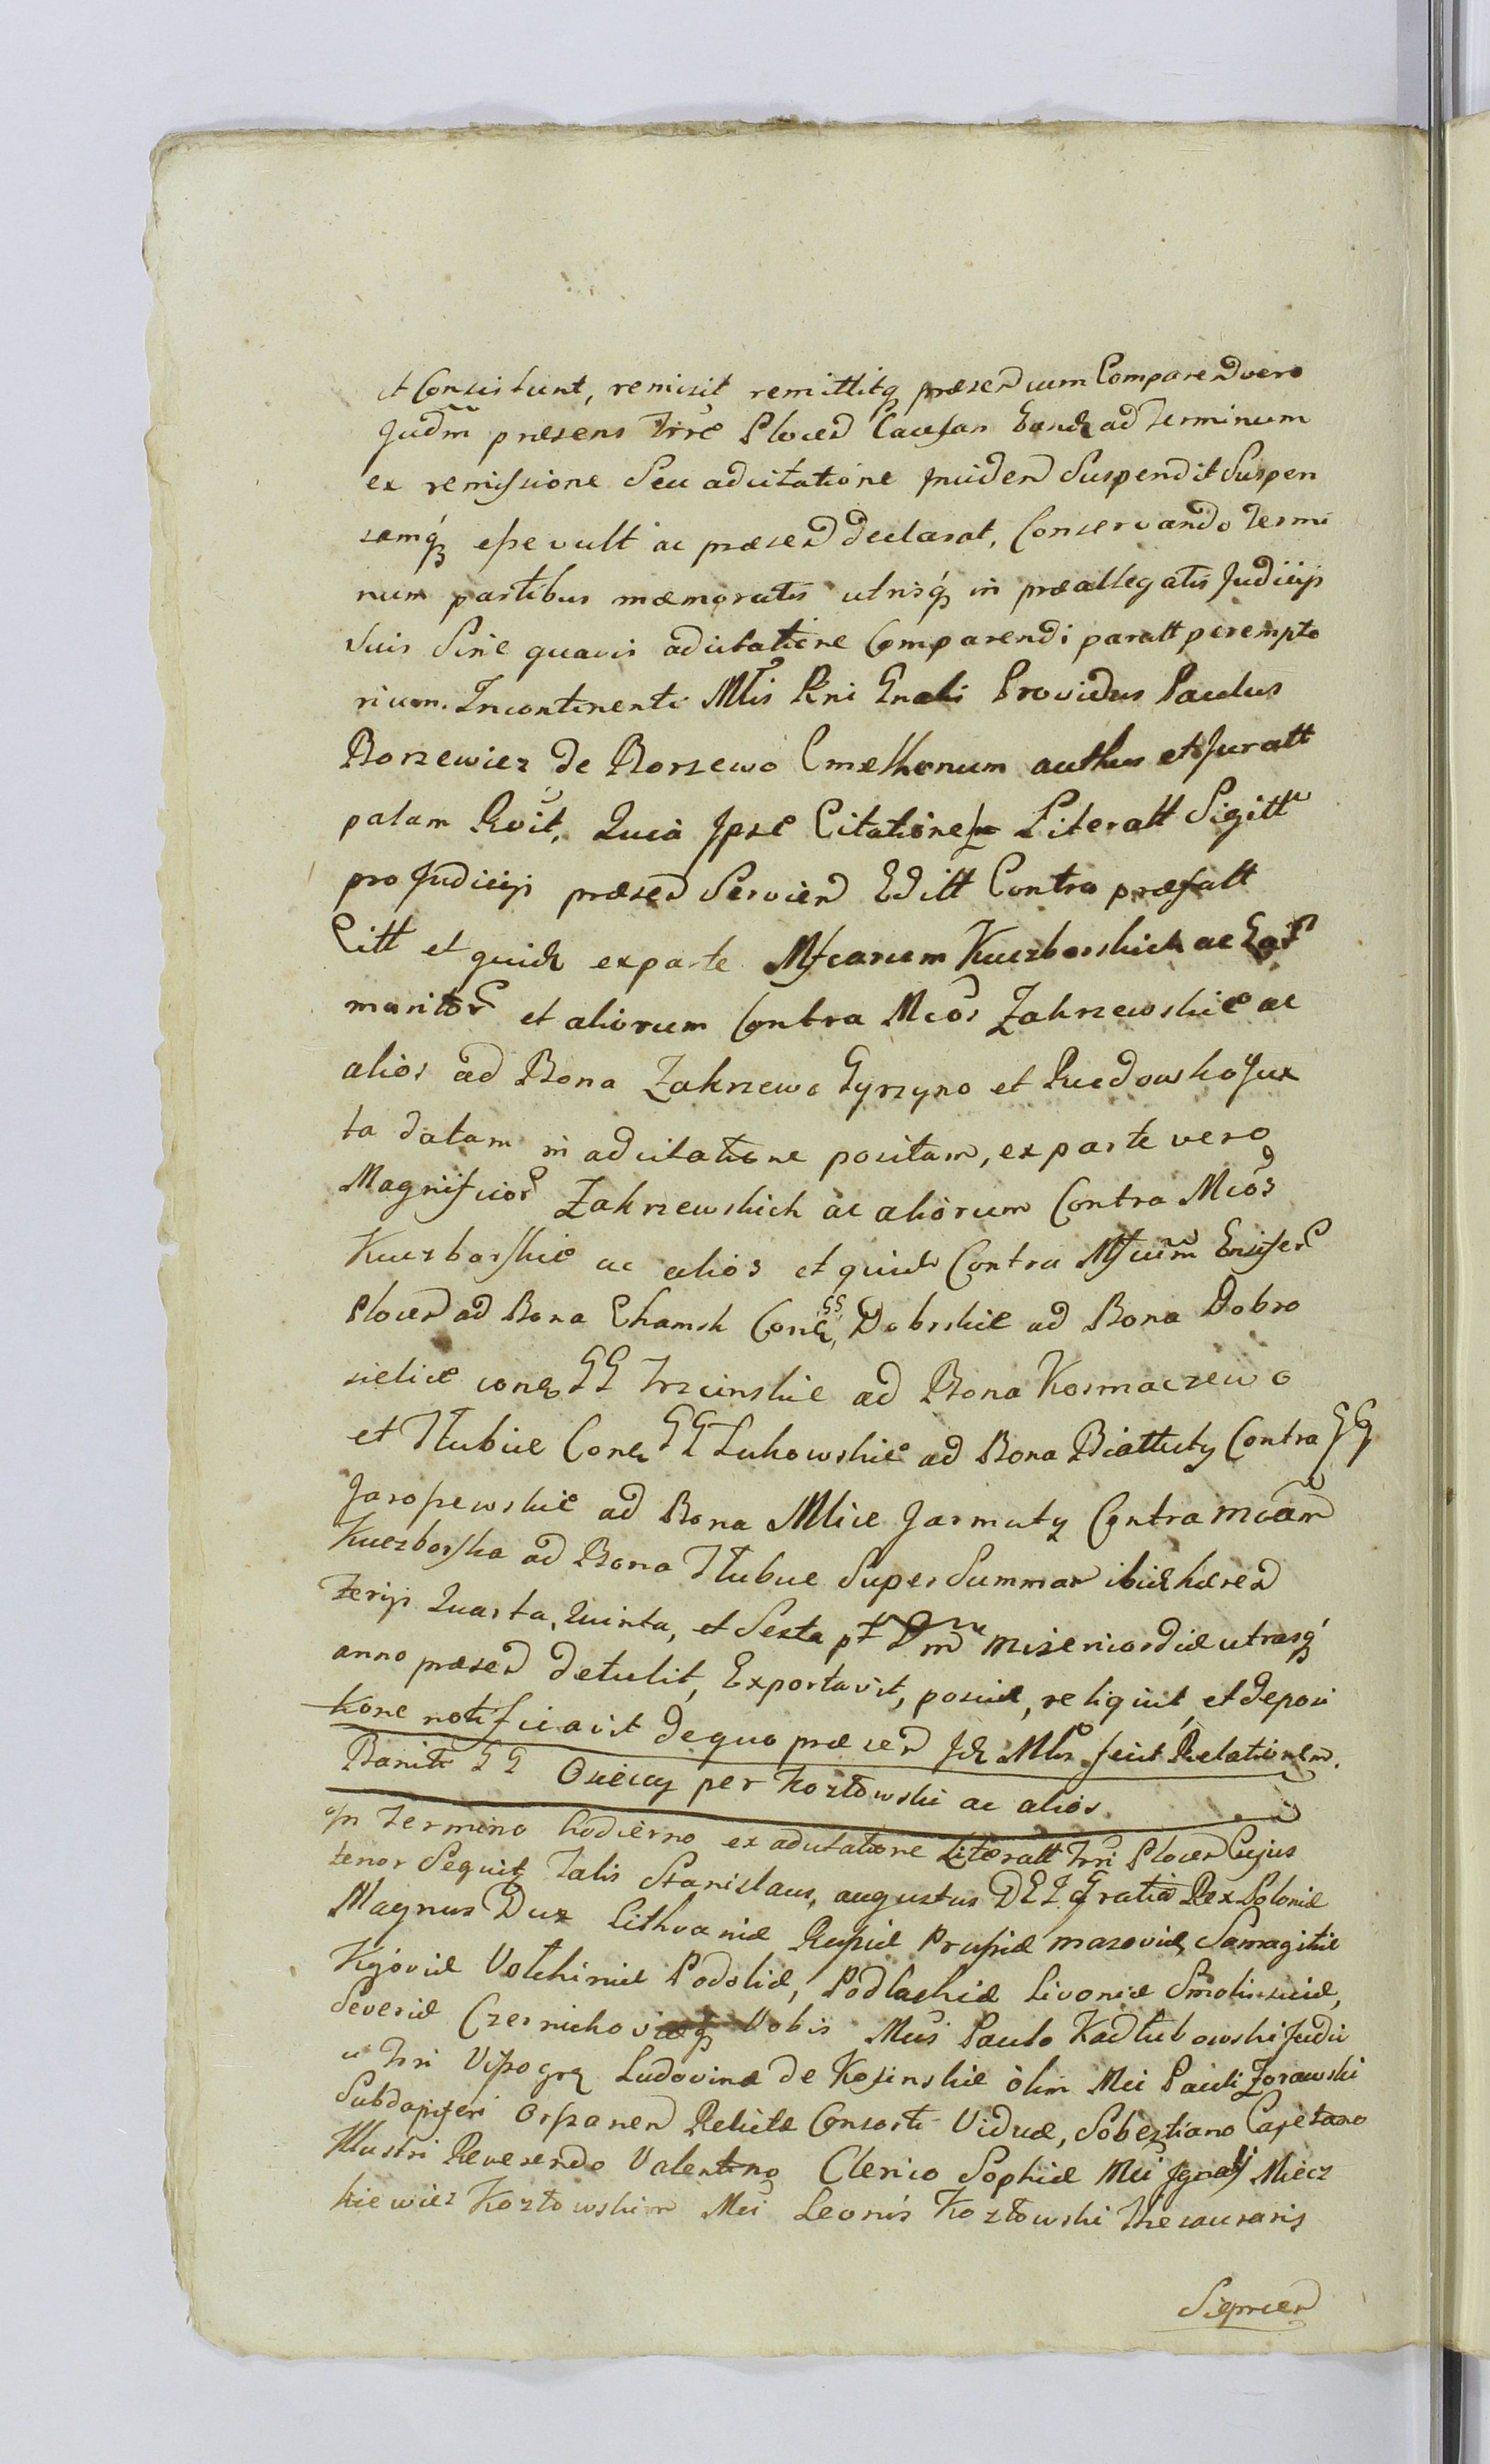 et Consistunt, remisit remittitq præsen cum Comparen vero
Judm præsens Trre Plocen Causam Eand ad Terminum
ex remissione Seu adcitatione inciden Suspendit Suspen
samq́ esse vult ac præsen declarat, Conservando Termi
num partibus mæmoratis utrisq́ in præallegatis Judicijs
Suis Sine quavis adcitatione Comparendi paratt perempto
rium. Incontinenti Mtis Rni Gnalis Providus Paulus
Borzewicz de Borzewo Cmethonum authus et Juratt
palam Rvit, Quia Ipse Citationes Literatt Sigitt
pro Judicijs præsen Servien Editt Contra præfatt
Citt et quid ex parte Mfcarum Kuczborskich ac Ear
maritor et aliorum Contra Mcos Zakrzewskie ac
alios ad Bona Zakrzewo Gyrzyno et Rudowsko Jux
ta datam in adcitatione positam, ex parte vero
Magnificor Zakrzewskich ac aliorum Contra Mcos
Kuczborskie ac alios et quid Contra Mfcum Ensifer
Plocen ad Bona Chamsk Con GG Dobrskie ad Bona Dobro
sielice con GG Trzcinskie ad Bona Kosmaczewo
et Tłubice Con GG Łukowskie ad Bona Białłuty Contra GG
Jaroszewskie ad Bona Mlice Jarmuty Contra Mcam
Kuczborska ad Bona Tłubice Super Summar ibid hæren
Ferijs Quarta, Quinta, et Sexta pt Dm Misericordiæ utrasq́
anno præsen detulit, Exportavit, posuit, reliquit, et deposi
tione notificavit de quo præsen Id Mtr fecit Relationem.
Baniti GG Osieccy per Kozłowski ac alios
In Termino hodierno ex adcitatione Literatt Trri Plocen Cujus
tenor Sequitq Talis Stanislaus, augustus DEI Gratia Rex Poloniæ
Magnus Dux Lithvaniæ Russiæ Prussiæ Masoviæ Samogitiæ
Kijoviæ Volhiniæ Podoliæ, Podlachiæ Livoniæ Smolensciæ,
Severiæ Czernichoviæq Vobis Mcis Paulo Kadłubowski Judici
Trri Vissogr Ludovinæ de Kosinskie olim Mci Pauli Zorawski
Subdapiferi Orszanen Relictæ Consorti Viduæ, Sobestiano Cajetano
Illustri Reverendo Valentino Clerico Sophiæ Mci Ignatij Miecz
kiewicz Kozłowskim Mci Leonis Kozłowski Thesauraris
Sieprcen